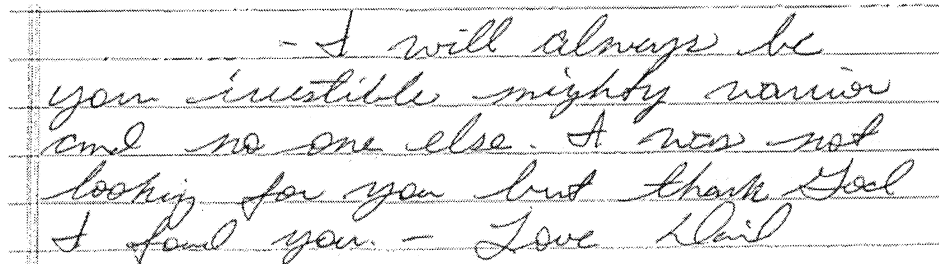 - I will always be
your irrestible mighty warrior
and no one else. I was not
looking for you but thank God
I found you. - Love David